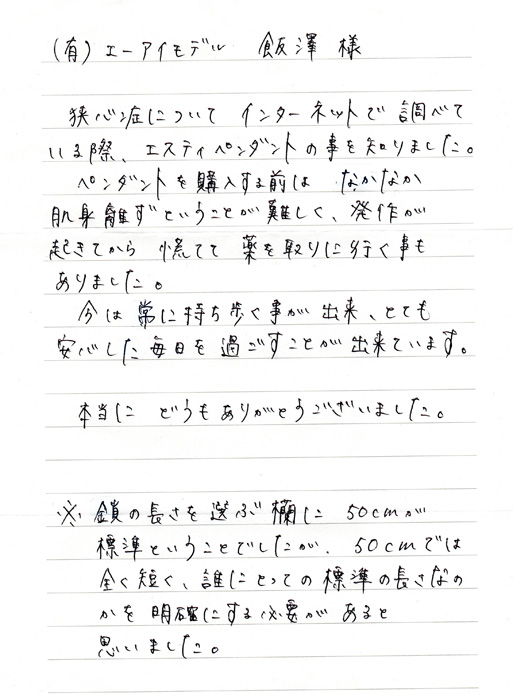 (有)エーアイモデル 飯澤 様
狭心症について インターネットで 調べて
いる際、エスティペンダントの事を知りました。
ペンダントを購入する前は なかなか
肌身離ずということが難しく、発作が
起きてから 慌てて 薬を取りに行く事も
ありました。
今は常に持ち歩く事が出来、とても
安心した毎日を過ごすことが出来ています。
本当に どうもありがとうございました。
※ 鎖の長さを選ぶ欄に 50cmが
標準ということでしたが、50cmでは
全く短く、誰にとっての標準の長さなの
かを 明確にする必要が あると
思いました。